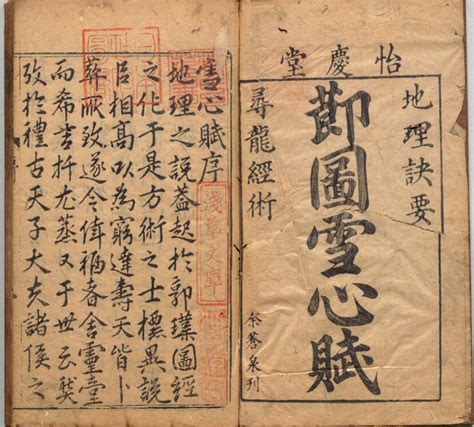 怡慶堂
地理訣要
莭圖雪心賦
尋龍經術
余蒼泉刊
雪心賦序
地理之說蓋起於郭璞圖經
之化于是方術之士標異說
相髙以為窮達壽夭皆卜
葬所致遂令福者舍靈臺
而希吉又于世云
攷於禮古天子大夫諸侯之
淺草文庫